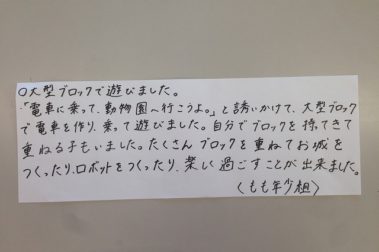 ○大型ブロックで遊びました。
・「電車に乗って、動物園へ行こうよ。」と誘いかけて、大型ブロック
で電車を作り、乗って遊びました。自分でブロックを持てきて
重ねる子もいました。たくさんブロックを重ねてお城を
つくったり、ロボットをつくったり、楽しく過ごすことが出来ました。
（もも年少組）